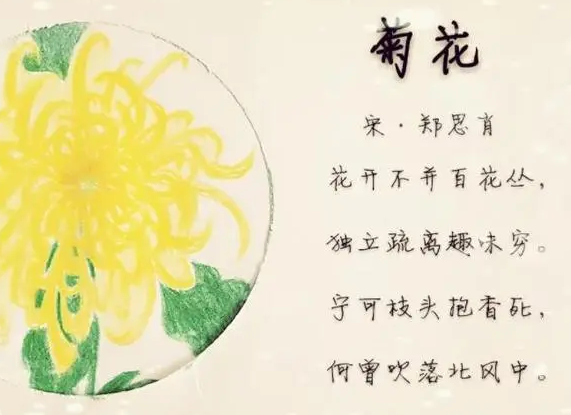 菊花
宋·郑思肖
花开不并百花丛，
独立疏离趣味穷。
宁可枝头抱香死，
何曾吹落北风中。